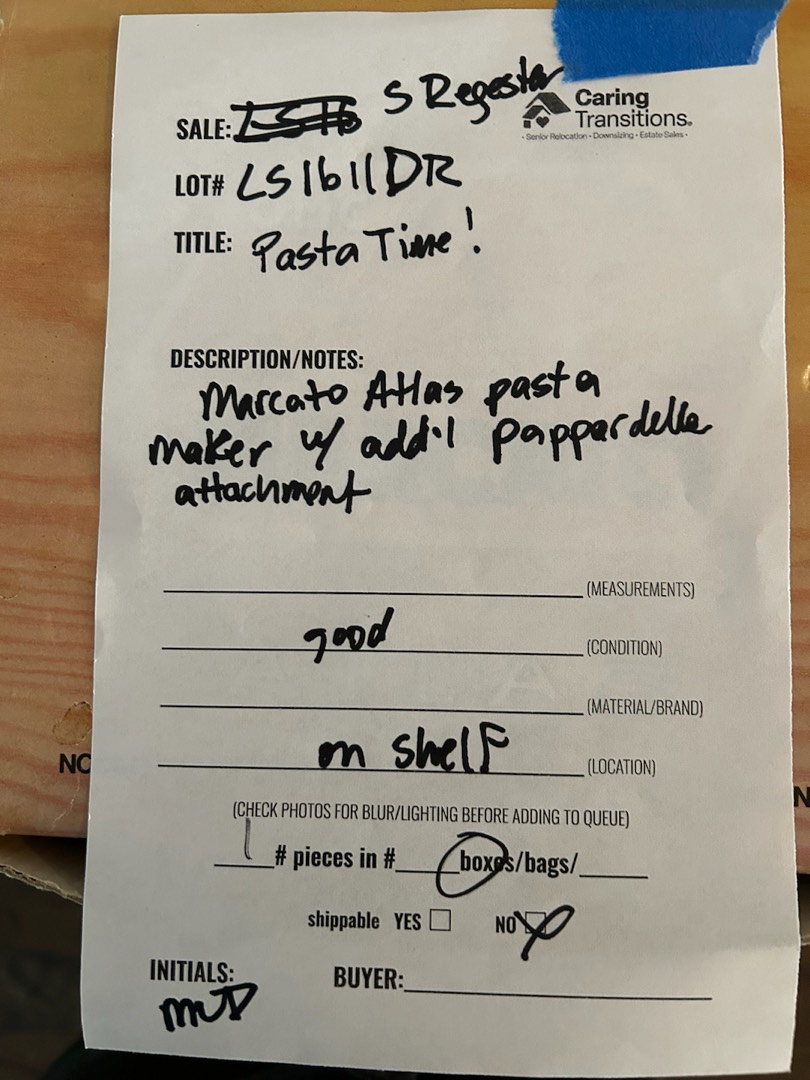 SALE: S Regester
Caring
Transitions®
• Senior Relocation • Downsizing • Estate Sales •
LOT# LS1611DR
TITLE: Pasta Time!
DESCRIPTION/NOTES:
Marcato Atlas pasta
maker w/ add'l pappardelle
attachment
(MEASUREMENTS)
good (CONDITION)
(MATERIAL/BRAND)
on shelf (LOCATION)
(CHECK PHOTOS FOR BLUR/LIGHTING BEFORE ADDING TO QUEUE)
1 # pieces in # boxes/bags/
shippable YES NO
INITIALS: BUYER:
MJD
NO
N